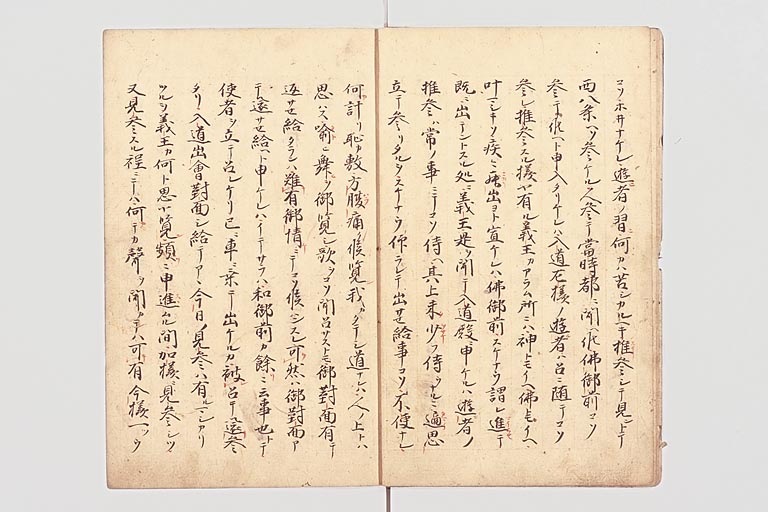 コソホ井ナケレ遊者ノ習何カハ苦シカルヘキ推参シテ見ントテ
西八条ヘソ参ケル人参テ當時都ニ聞ヘ候佛御前コソ
参テ候ヘト申入タリケレハ入道左様ノ遊者ハ召ニ随テコソ
参レ推参スル様ヤ有ル義王カアラム所ニハ神トモイヘ佛トモイヘ
叶マシキソ疾々罷出ヨト宣ケレハ佛御前スケナウ謂レ進テ
既ニ出テントスル処ニ義王是ヲ聞テ入道殿ニ申ケルハ遊者ノ
推参ハ常ノ事ニテコソ侍ハ其上未少フ侍ナルニ適思
立テ参リタルヲスケナウ仰ラレテ出セ給事コソ不便ナレ
何計リ恥カ敷方腹痛ク候覧我カタテシ道ナレハ人ノ上トハ
思ハス喩ニ舞ヲ御覧シ歌ヲコソ聞召サストモ御對面有テ
返サセ給タランハ難有御情ニテコソ候ハンスレ可然ハ御對面ア
テ返サセ給ヘト申ケレハイテサラハ和御前カ餘ニ云事也トテ
使者ヲ立テ召レケリ已ニ車ニ乗テ出ケルカ被召テ返参
タリ入道出會對面シ給テアハ今日ノ見参ハ有ルマシカリ
ツルヲ義王カ何ト思ヤ覧頻ニ申進ムル間加様ニ見参シツ
又見参スル程ニテハ何テカ聲ヲ聞カテハ可有今様一ツウ